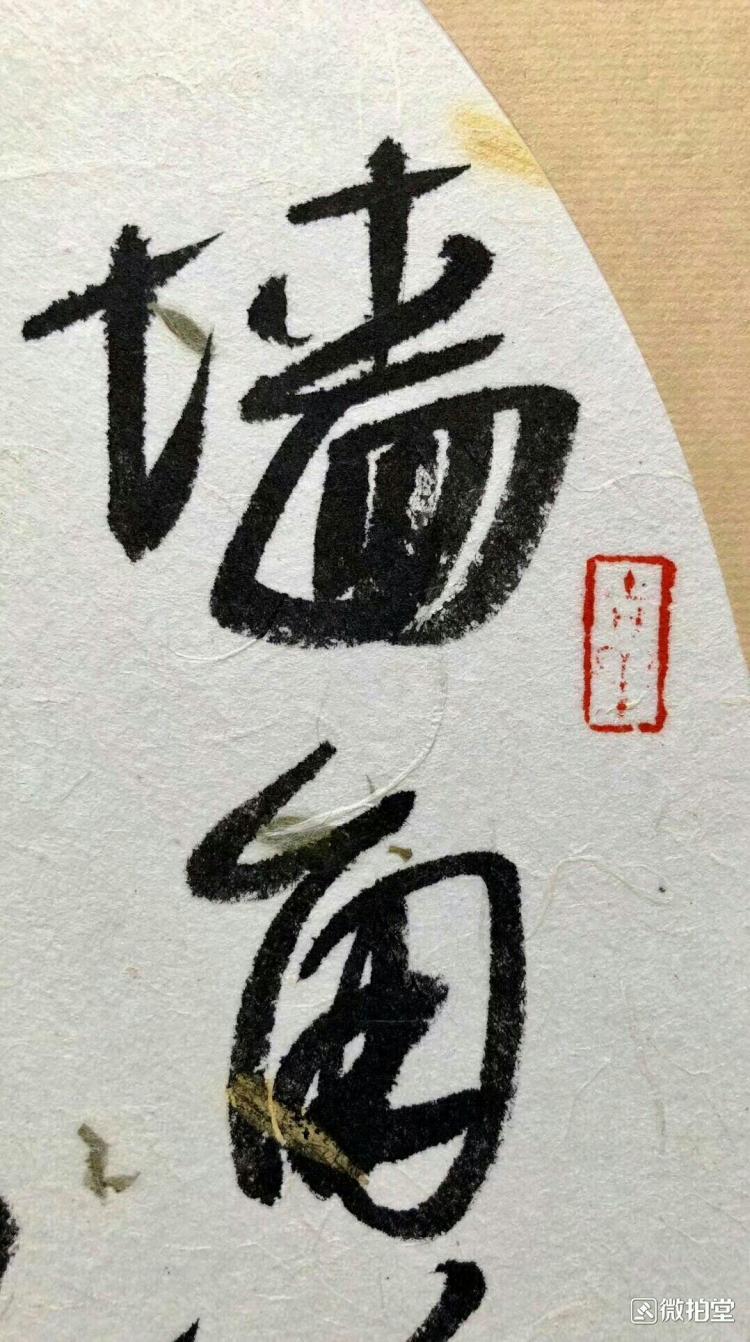 墙角
微拍堂